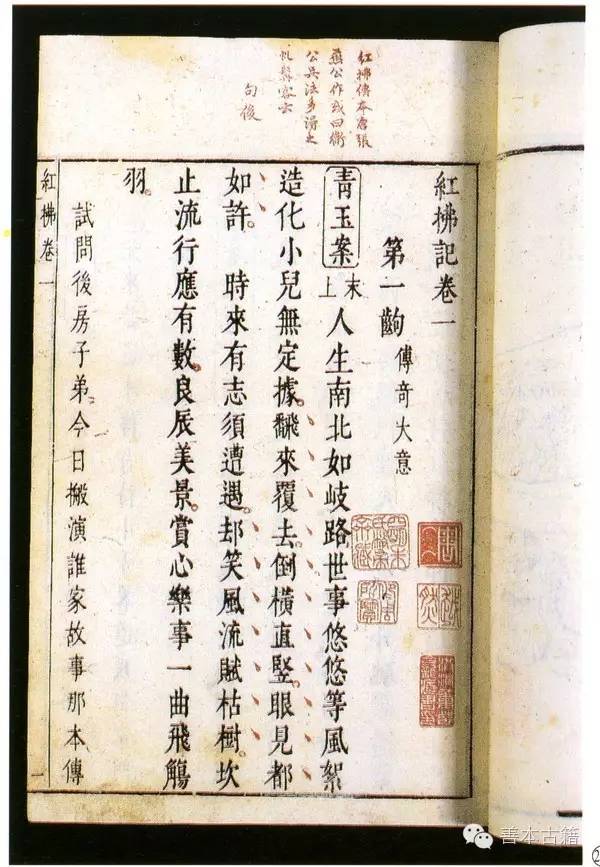 紅拂傳本唐張
燕公作或曰衛
公兵法多得之
虬髯客云
句後
紅拂記卷一
第一齣 傳奇大意
青玉案 末上 人生南北如岐路世事悠悠等風絮
造化小兒無定據。飜來覆去。倒橫直竪。眼見都
如許。 時來有志須遭遇。却笑風流賦枯樹。坎
止流行應有數。良辰美景。賞心樂事一曲飛觴
羽。
試問後房子弟。今日搬演誰家故事那本傳
紅拂卷一 一
善本古籍